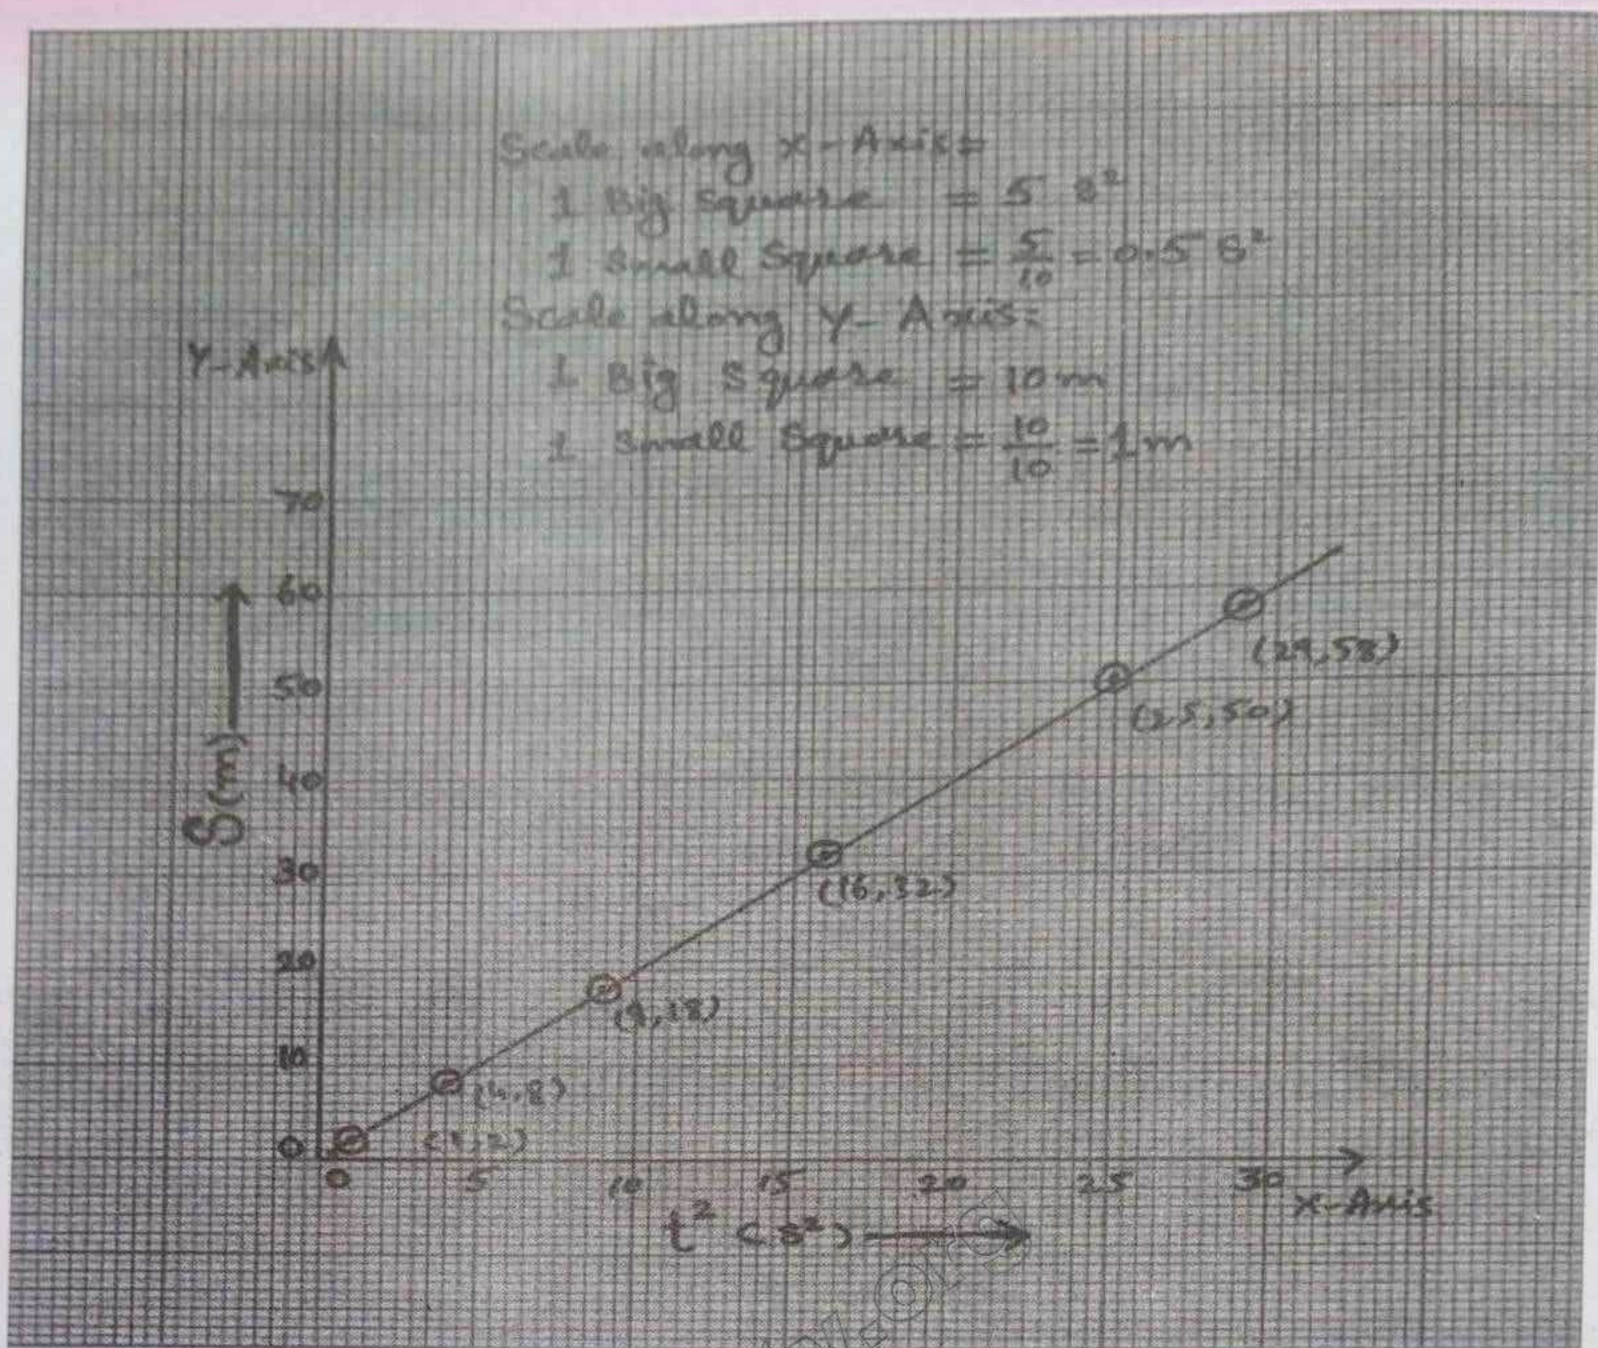 Scale along x-Axis=
1 Big Square = 5 s²
1 Small Square = 5/10 = 0.5 s²
Scale along Y-Axis=
1 Big Square = 10 m
1 Small Square = 10/10 = 1 m
Y-Axis
70
60
50
40
30
20
10
0
S(m)
(29,58)
(25,50)
(16,32)
(9,18)
(4,8)
(1,2)
0 5 10 15 20 25 30
X-Axis
t² (s²)